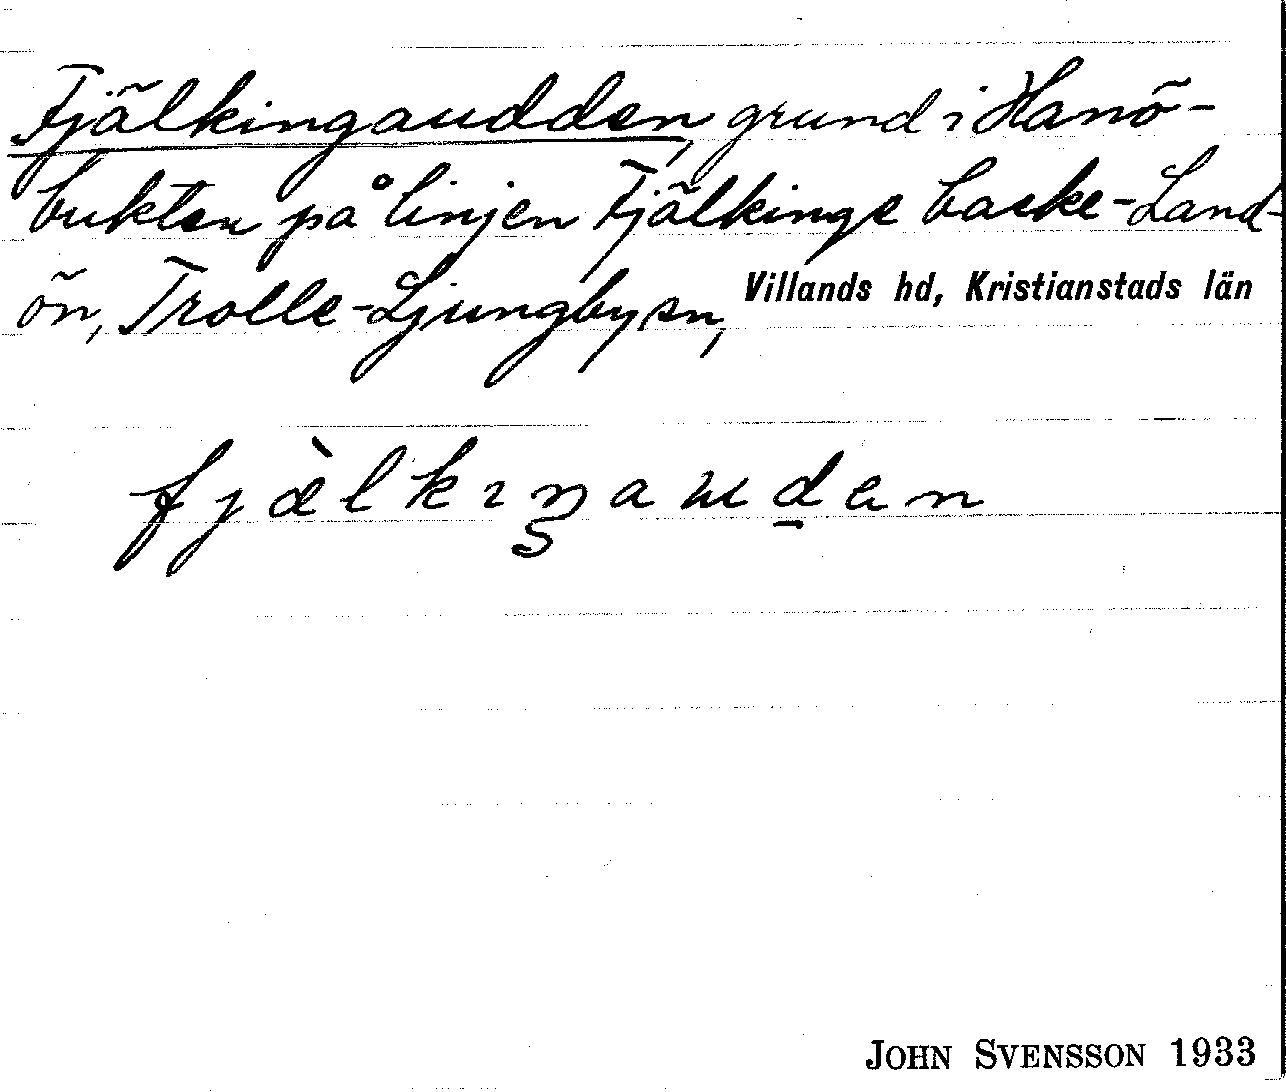 Fjälkingaudden, grund i Hanö-
bukten på linjen Fjälkinge backe-Land-
ön, Trolle-Ljungby sn, Villands hd, Kristianstads län
fjæ̀lkıŋaɯd̠en
JOHN SVENSSON 1933